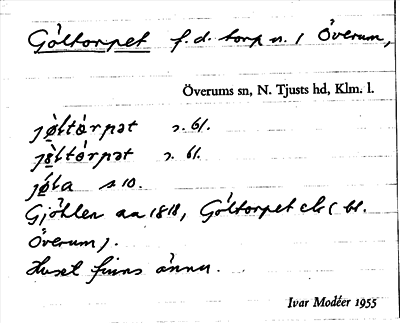 Göltorpet f.d. torp u. / Överum,
Överums sn, N. Tjusts hd, Klm. l.
jø̀ltòrpət s. 61.
jø̀ltòrpət s. 61.
jø̀la s 10.
Gjöhlen aa 1818, Göltorpet ek ( bl.
Överum ) .
Huset finns ännu.
Ivar Modéer 1955